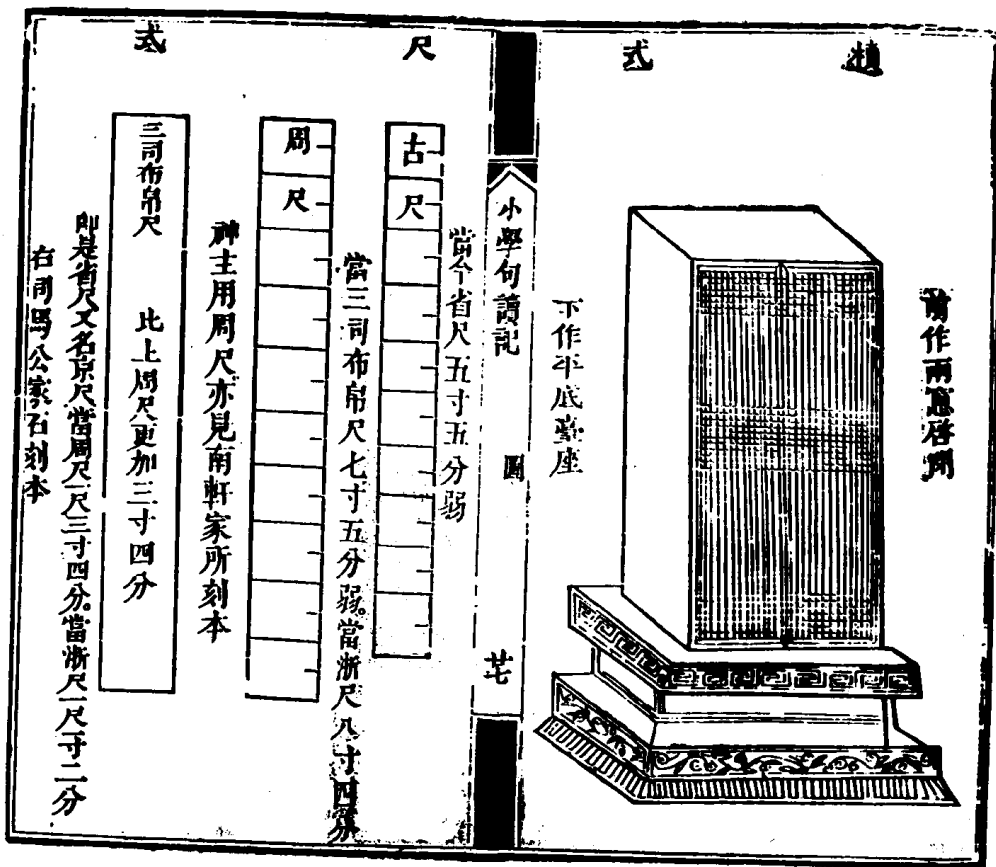 櫝式
前作兩窓啓閉
下作平底臺座
小學句讀記
圖
芒
尺式
古尺
當今省尺五寸五分弱
當三司布帛尺七寸五分弱。當浙尺八寸四分
周尺
神主用周尺亦見南軒家所刻本
三司布帛尺
比上周尺更加三寸四分
即是省尺又名京尺當周尺一尺三寸四分。當浙尺一尺一寸二分
右司馬公家石刻本